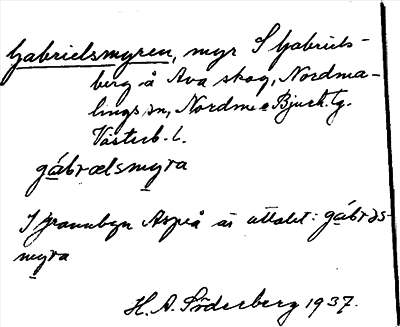 Gabrielsmyren, myr S Gabriels-
berg å Ava skog, Nordma-
lings sn, Nordm. o Bjurh. tg.
Västerb. l.
gábrælsmyra
I grannbyn Aspeå är uttalet: gábrəs-
myra
H. A. Söderberg 1937.